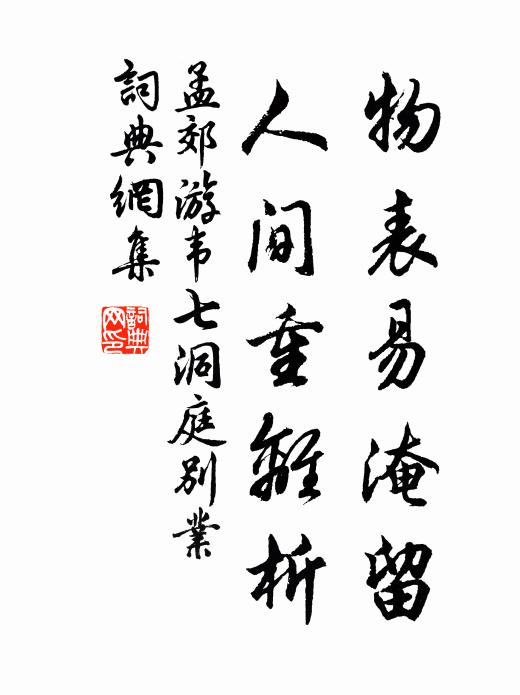 物表易淹留
人间重離析
孟郊游韦七洞庭别業
詞典網集
詞典网印